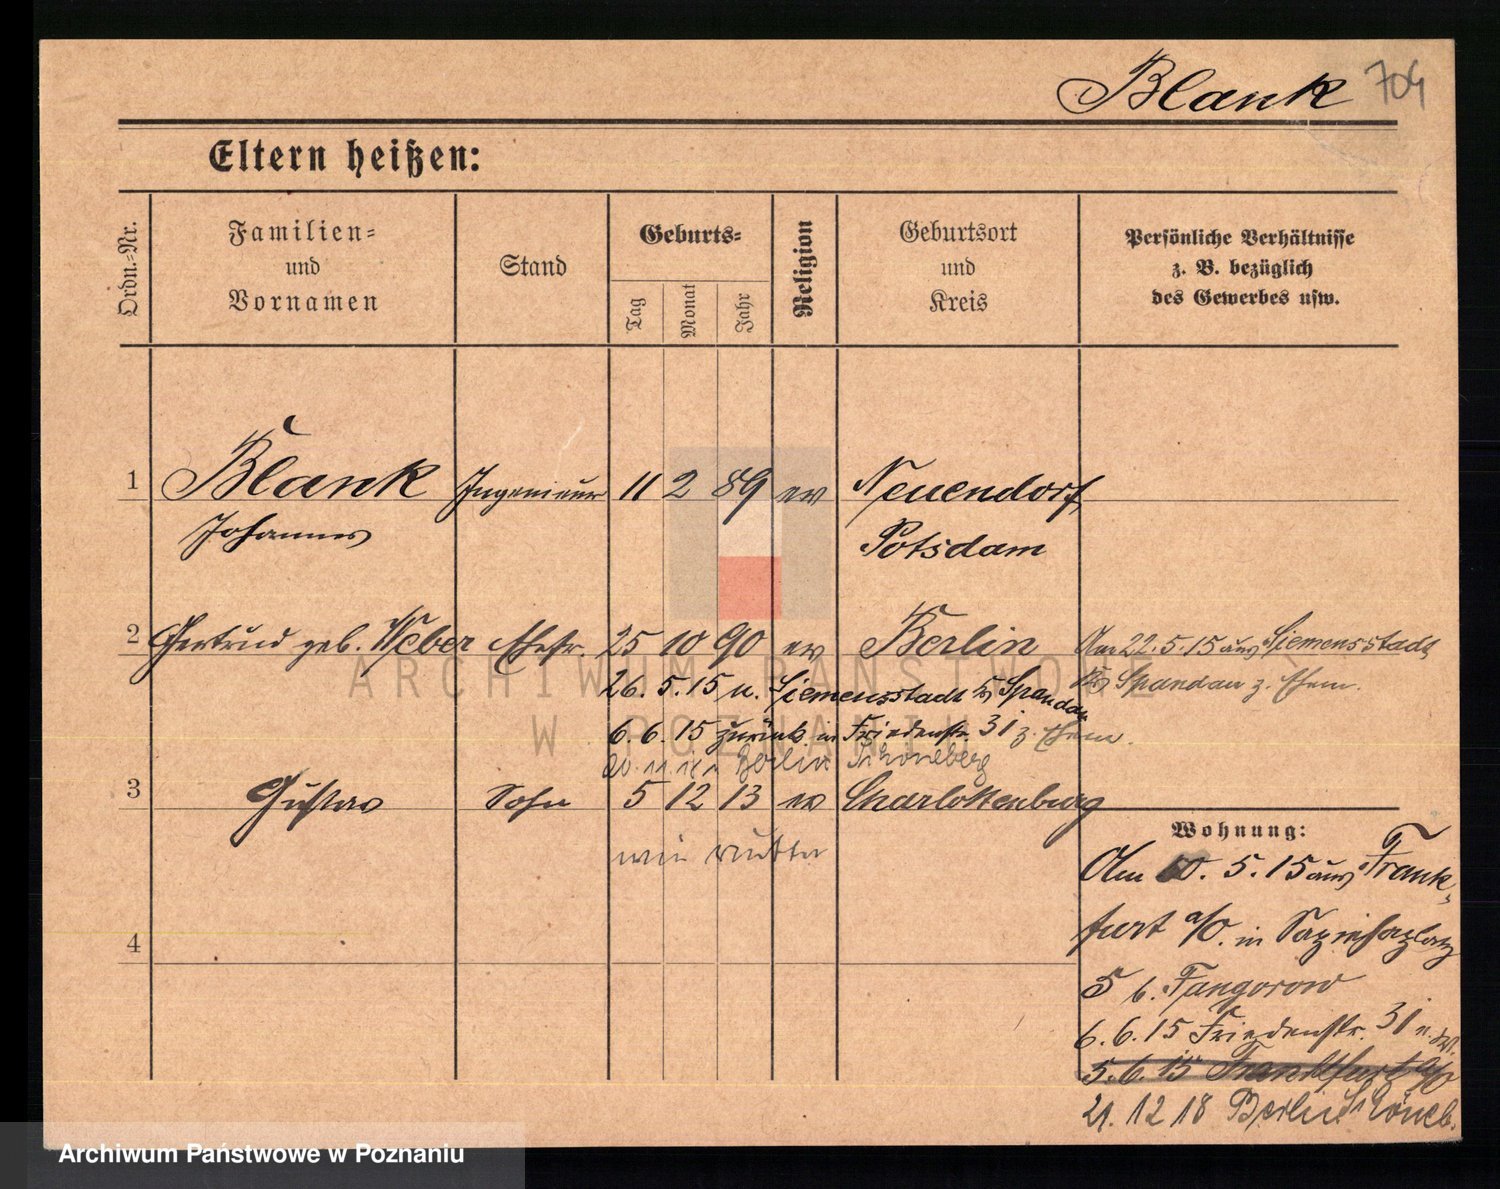 Blank 704
Eltern heißen:
Ordn.-Nr.
Familien-
und
Vornamen
Stand
Geburts-
Tag
Monat
Jahr
Religion
Geburtsort
und
Kreis
Persönliche Verhältnisse
z. B. bezüglich
des Gewerbes usw.
1 Blank Ingenieur 11 2 89 ev Neuendorf
Johannes Potsdam
2 Gertrud geb. Weber Ehefr. 25 10 90 ev Berlin Am 22.5.15 aus Siemensstadt
26. 5. 15 n. Siemensstadt b/ Spandau
b/ Spandau z. Ehem.
6. 6. 15 zurück in Friedenstr. 31 z. Ehem.
Berlin Schöneberg
3 Gustav Sohn 5 12 13 ev Charlottenburg
wie Mutter
4
Wohnung:
Am 10. 5. 15 aus Frank-
furt a/O. in Sapiehaplatz
5 b. Tangorow
6. 6. 15 Friedenstr. 31
5. 6. 15 Frankfurt a/O
21. 12 18 Berlin Schöneb.
ARCHIWUM PAŃSTWOWE
W POZNANIU
Archiwum Państwowe w Poznaniu